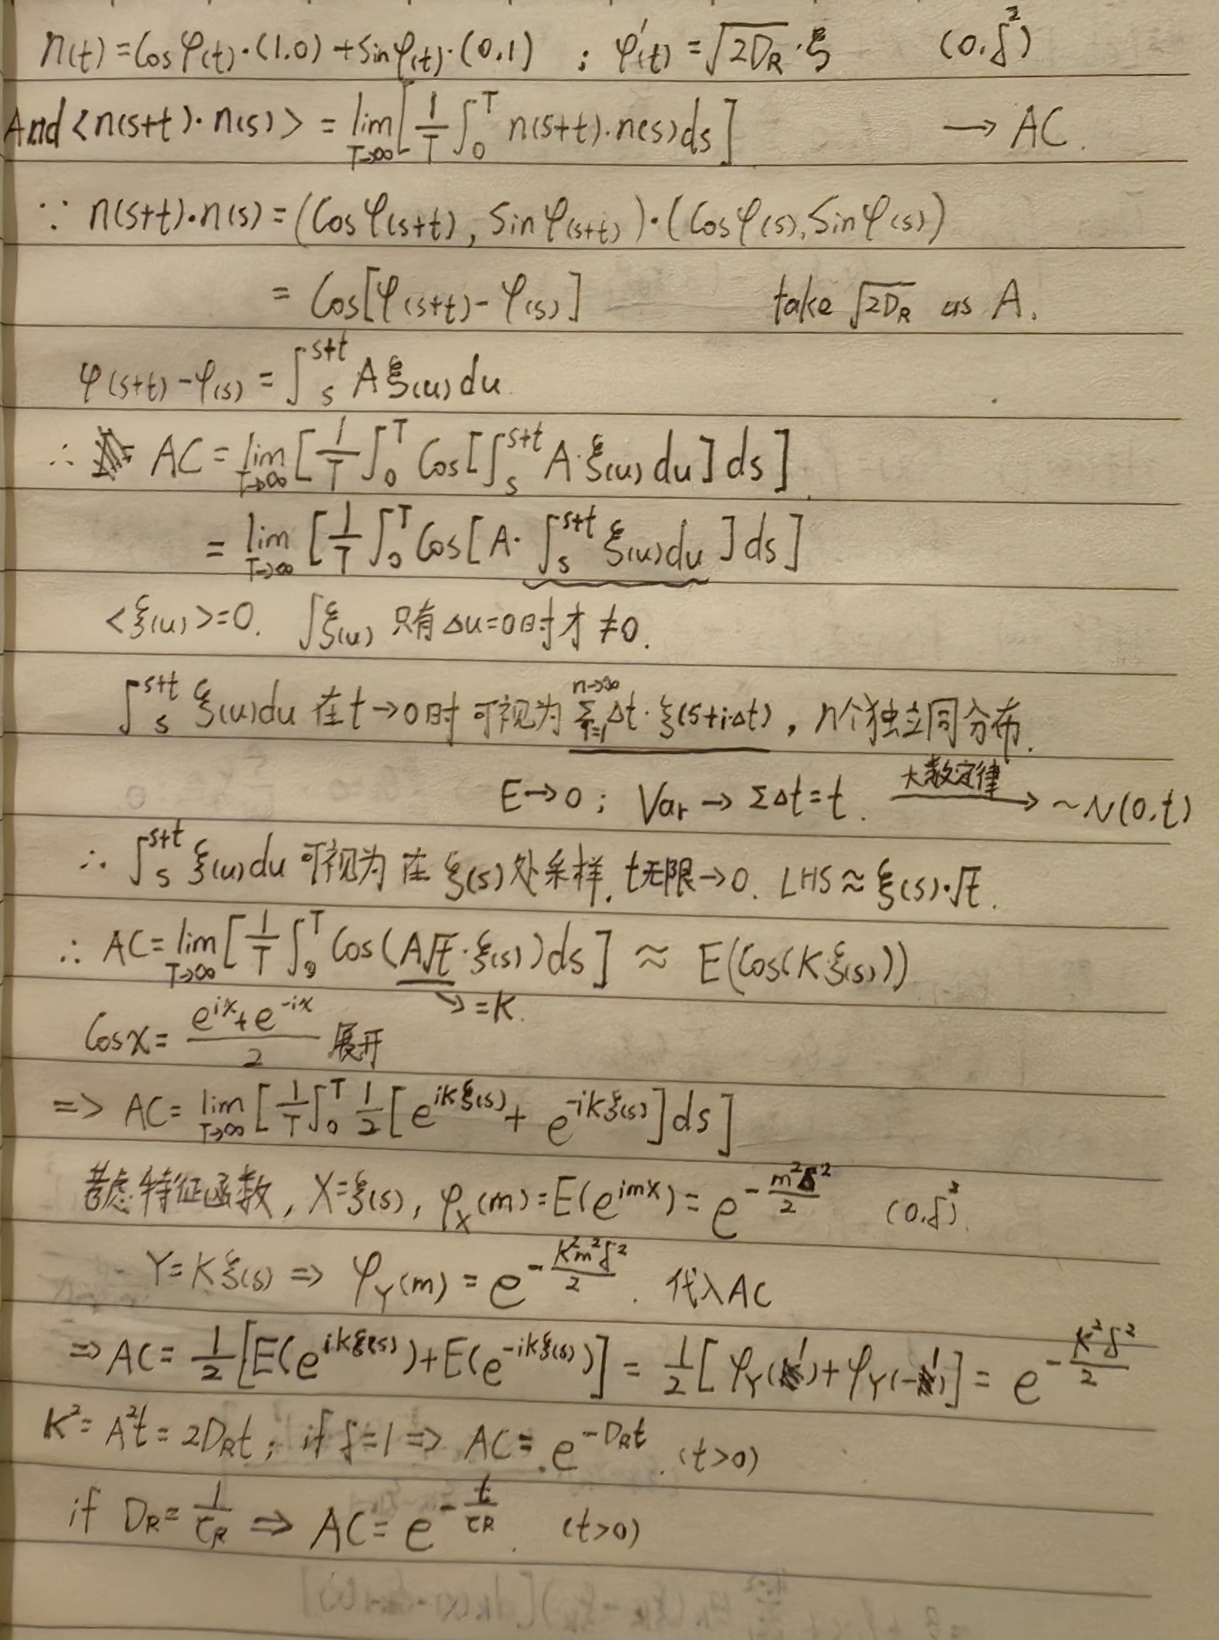 n(t)=Cosφ(t)·(1.0)+Sinφ(t)·(0,1) ; φ'(t)=√2D_R·ξ (0,δ²)
And <n(s+t)·n(s)> = lim_{T→∞}[1/T ∫₀^T n(s+t)·n(s)ds] → AC.
∵ n(s+t)·n(s)=(Cosφ(s+t), Sinφ(s+t))·(Cosφ(s),Sinφ(s))
= Cos[φ(s+t)-φ(s)] take √2D_R as A.
φ(s+t)-φ(s)=∫_s^{s+t} Aξ(u)du
∴ AC=lim_{T→∞}[1/T ∫₀^T Cos[∫_s^{s+t} A·ξ(u)du]ds]
= lim_{T→∞}[1/T ∫₀^T Cos[A·∫_s^{s+t} ξ(u)du]ds]
<ξ(u)>=0. ∫ξ(u) 只有Δu=0时才≠0.
∫_s^{s+t} ξ(u)du 在t→0时可视为 Σ_{i=1}^{n→∞} Δt·ξ(s+i·Δt), n个独立同分布.
E→0; Var→ΣΔt=t. 大数定律→ ~N(0,t)
∴ ∫_s^{s+t} ξ(u)du可视为在ξ(s)处采样, t无限→0. LHS≈ξ(s)·√t.
∴ AC=lim_{T→∞}[1/T ∫₀^T Cos(A√t·ξ(s))ds] ≈ E(Cos(K·ξ(s)))
→=K.
Cosx=(e^{ix}+e^{-ix})/2 展开
=> AC=lim_{T→∞}[1/T ∫₀^T 1/2[e^{iKξ(s)}+e^{-iKξ(s)}]ds]
考虑特征函数, X=ξ(s), φ_X(m)=E(e^{imX})=e^{-m²δ²/2} (0,δ²)
Y=Kξ(s) => φ_Y(m)=e^{-K²m²δ²/2}. 代入AC
=> AC=1/2[E(e^{iKξ(s)})+E(e^{-iKξ(s)})]=1/2[φ_Y(1)+φ_Y(-1)]=e^{-K²δ²/2}
K²=A²t=2D_Rt; if δ=1 => AC=e^{-D_Rt}. (t>0)
if D_R=1/τ_R => AC=e^{-t/τ_R}. (t>0)